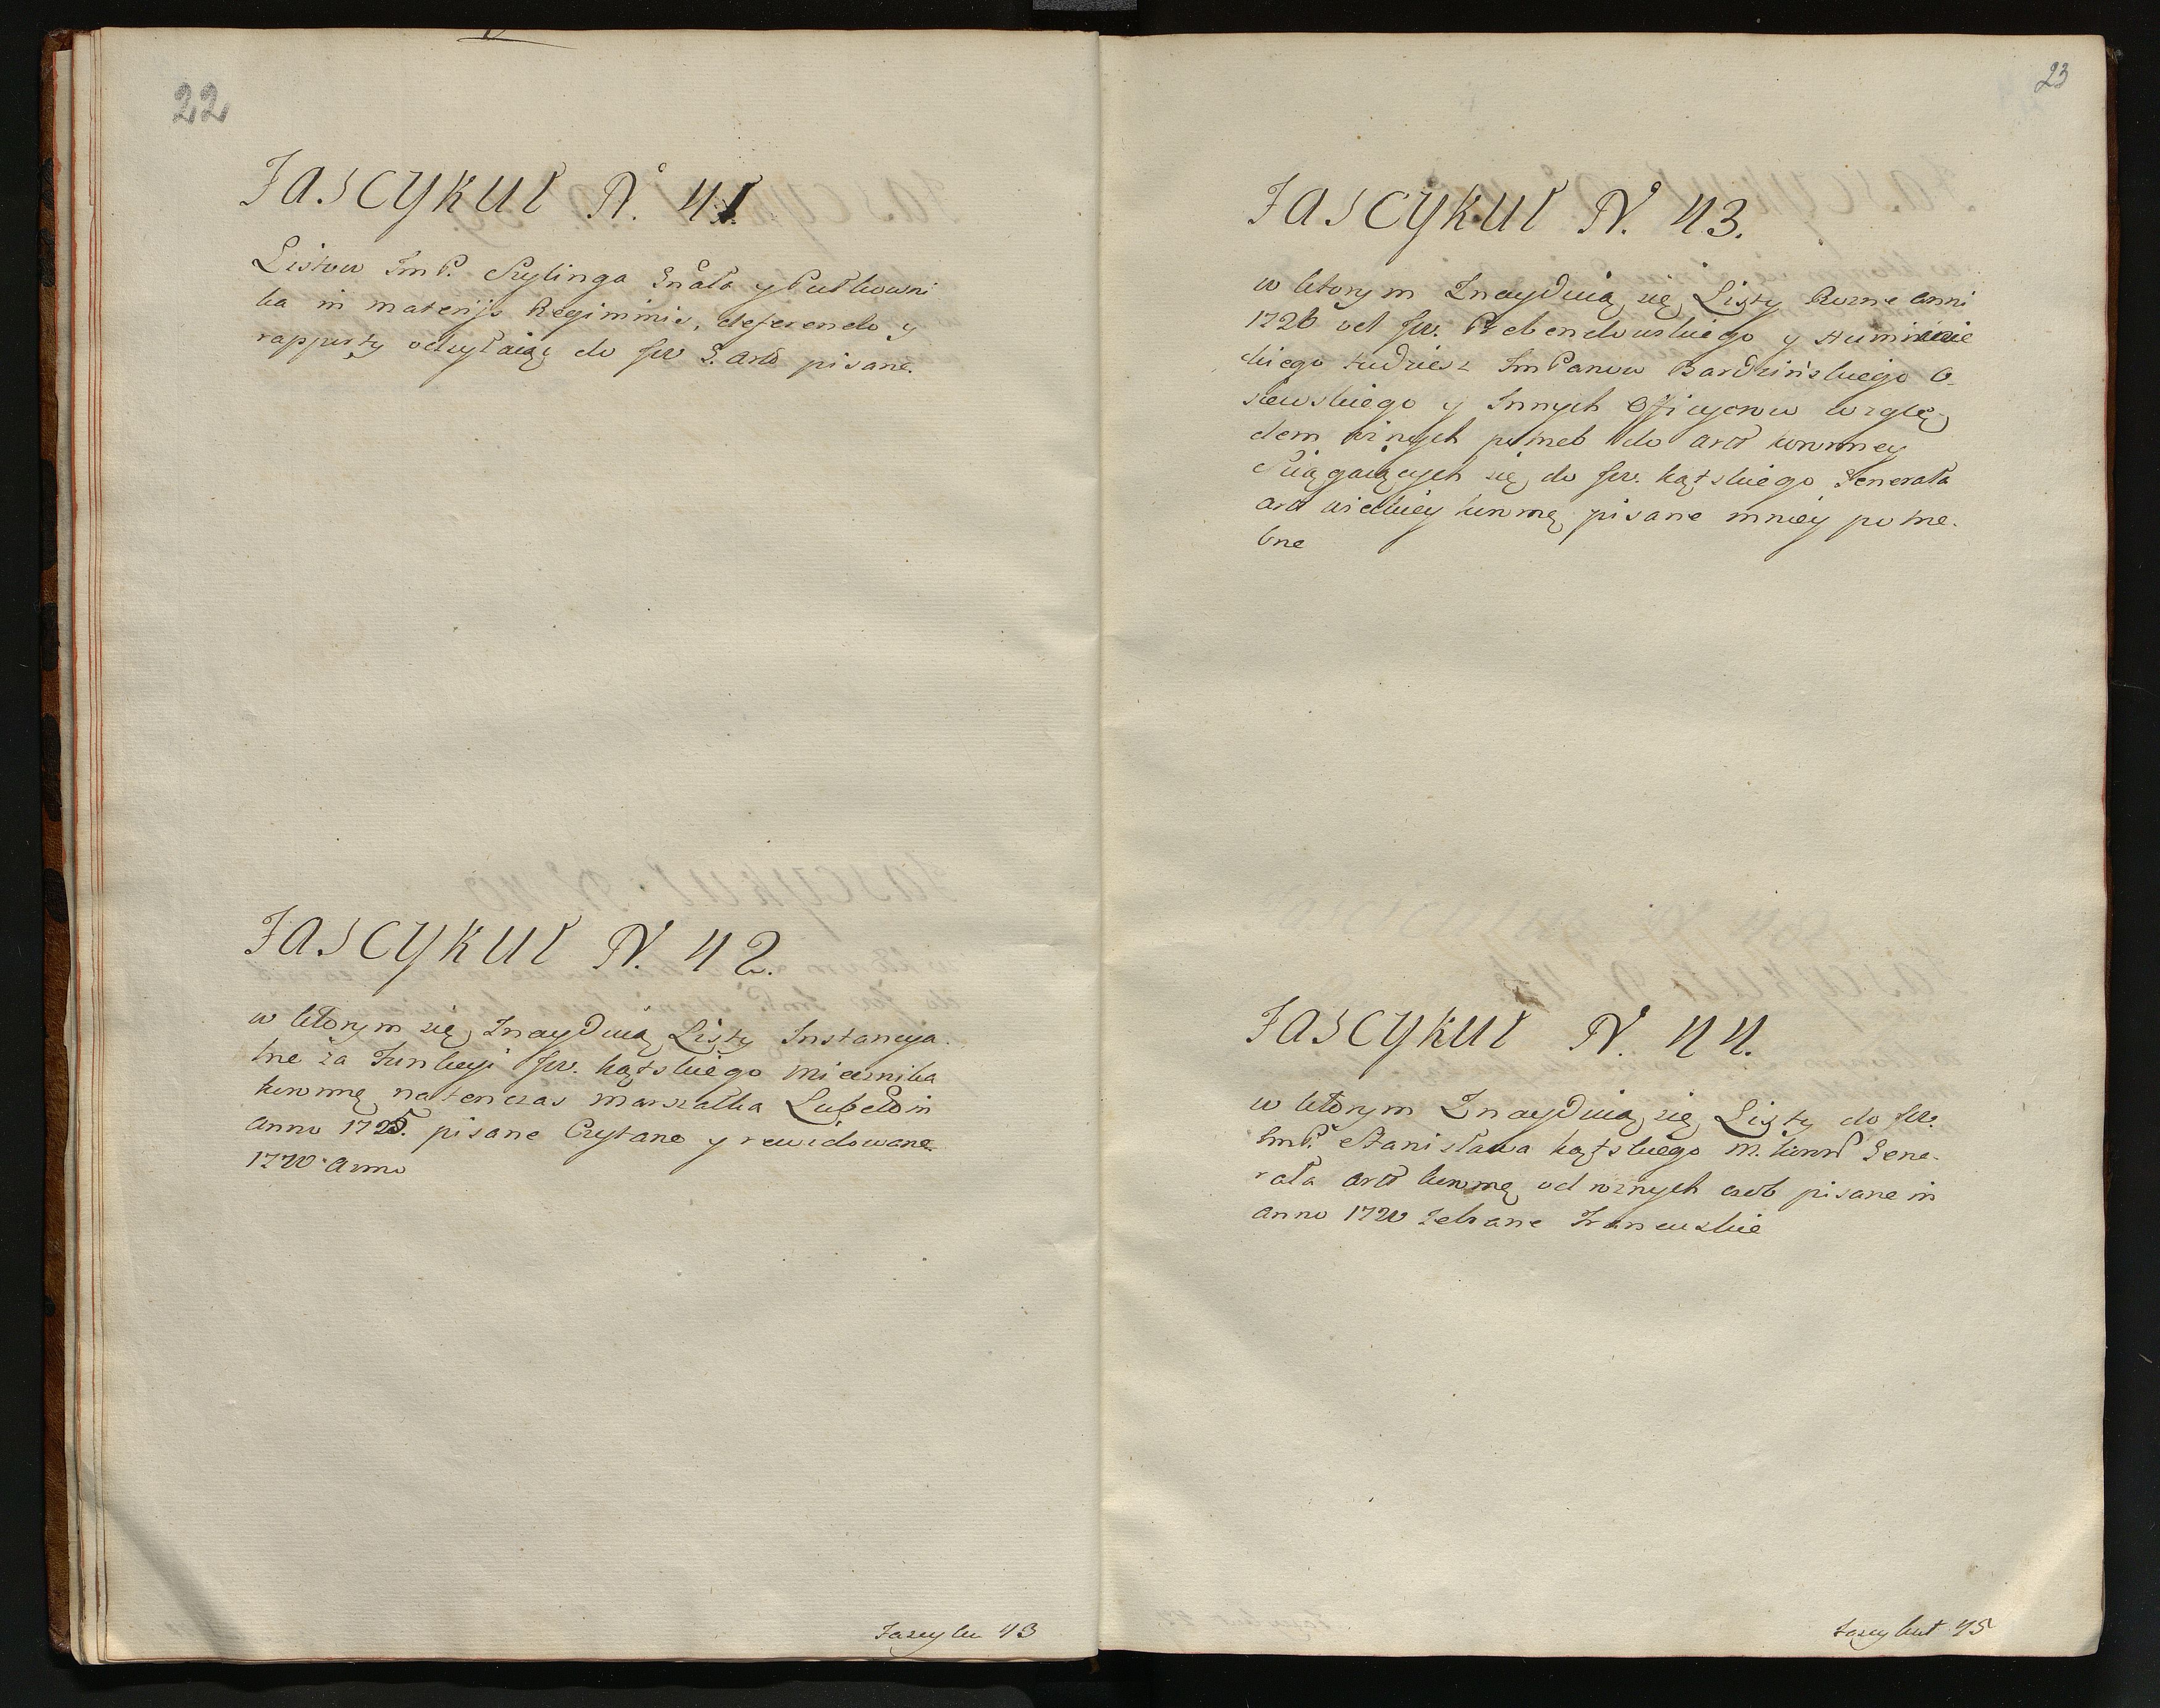 22
Fascykuł N. 41.
Listow Im P. Szylinga Gnała y Pułkowni
ka in materijs Regiminis, deferendo y
rapporty odsyłaiąc do Jw G. Art pisane.
Fascykuł N. 42.
w ktorym się Znayduią Listy Instancya
lne za Funkcyi Jw. Kątskiego Miecznika
koronnę natenczas Marszałka Lubel in
Anno 1725. pisane Czytane y rewidowane
1720 Anno
Fascyku 43
23
Fascykuł N. 43.
w ktorym Znayduią się Listy Rozne Anni
1726 od Jw. Przebendowskiego y
kiego tudziesz Im Panow Bardzińskiego O
siewskiego y Innych Officyerow wzglę
dem roznych potrzeb do Art koronney
Sciągaiących się do Jw. Kątskiego Generała
Art wielkiey koronnę pisane mniey potrze
bne
Fascykuł N. 44.
w ktorym Znayduią się Listy do Jw.
Im P. Stanisława Kątskiego M. koron Gene
rała Art koronnę od roznych osob pisane in
Anno 1720 zebrane Francuskie
Fascykuł 45